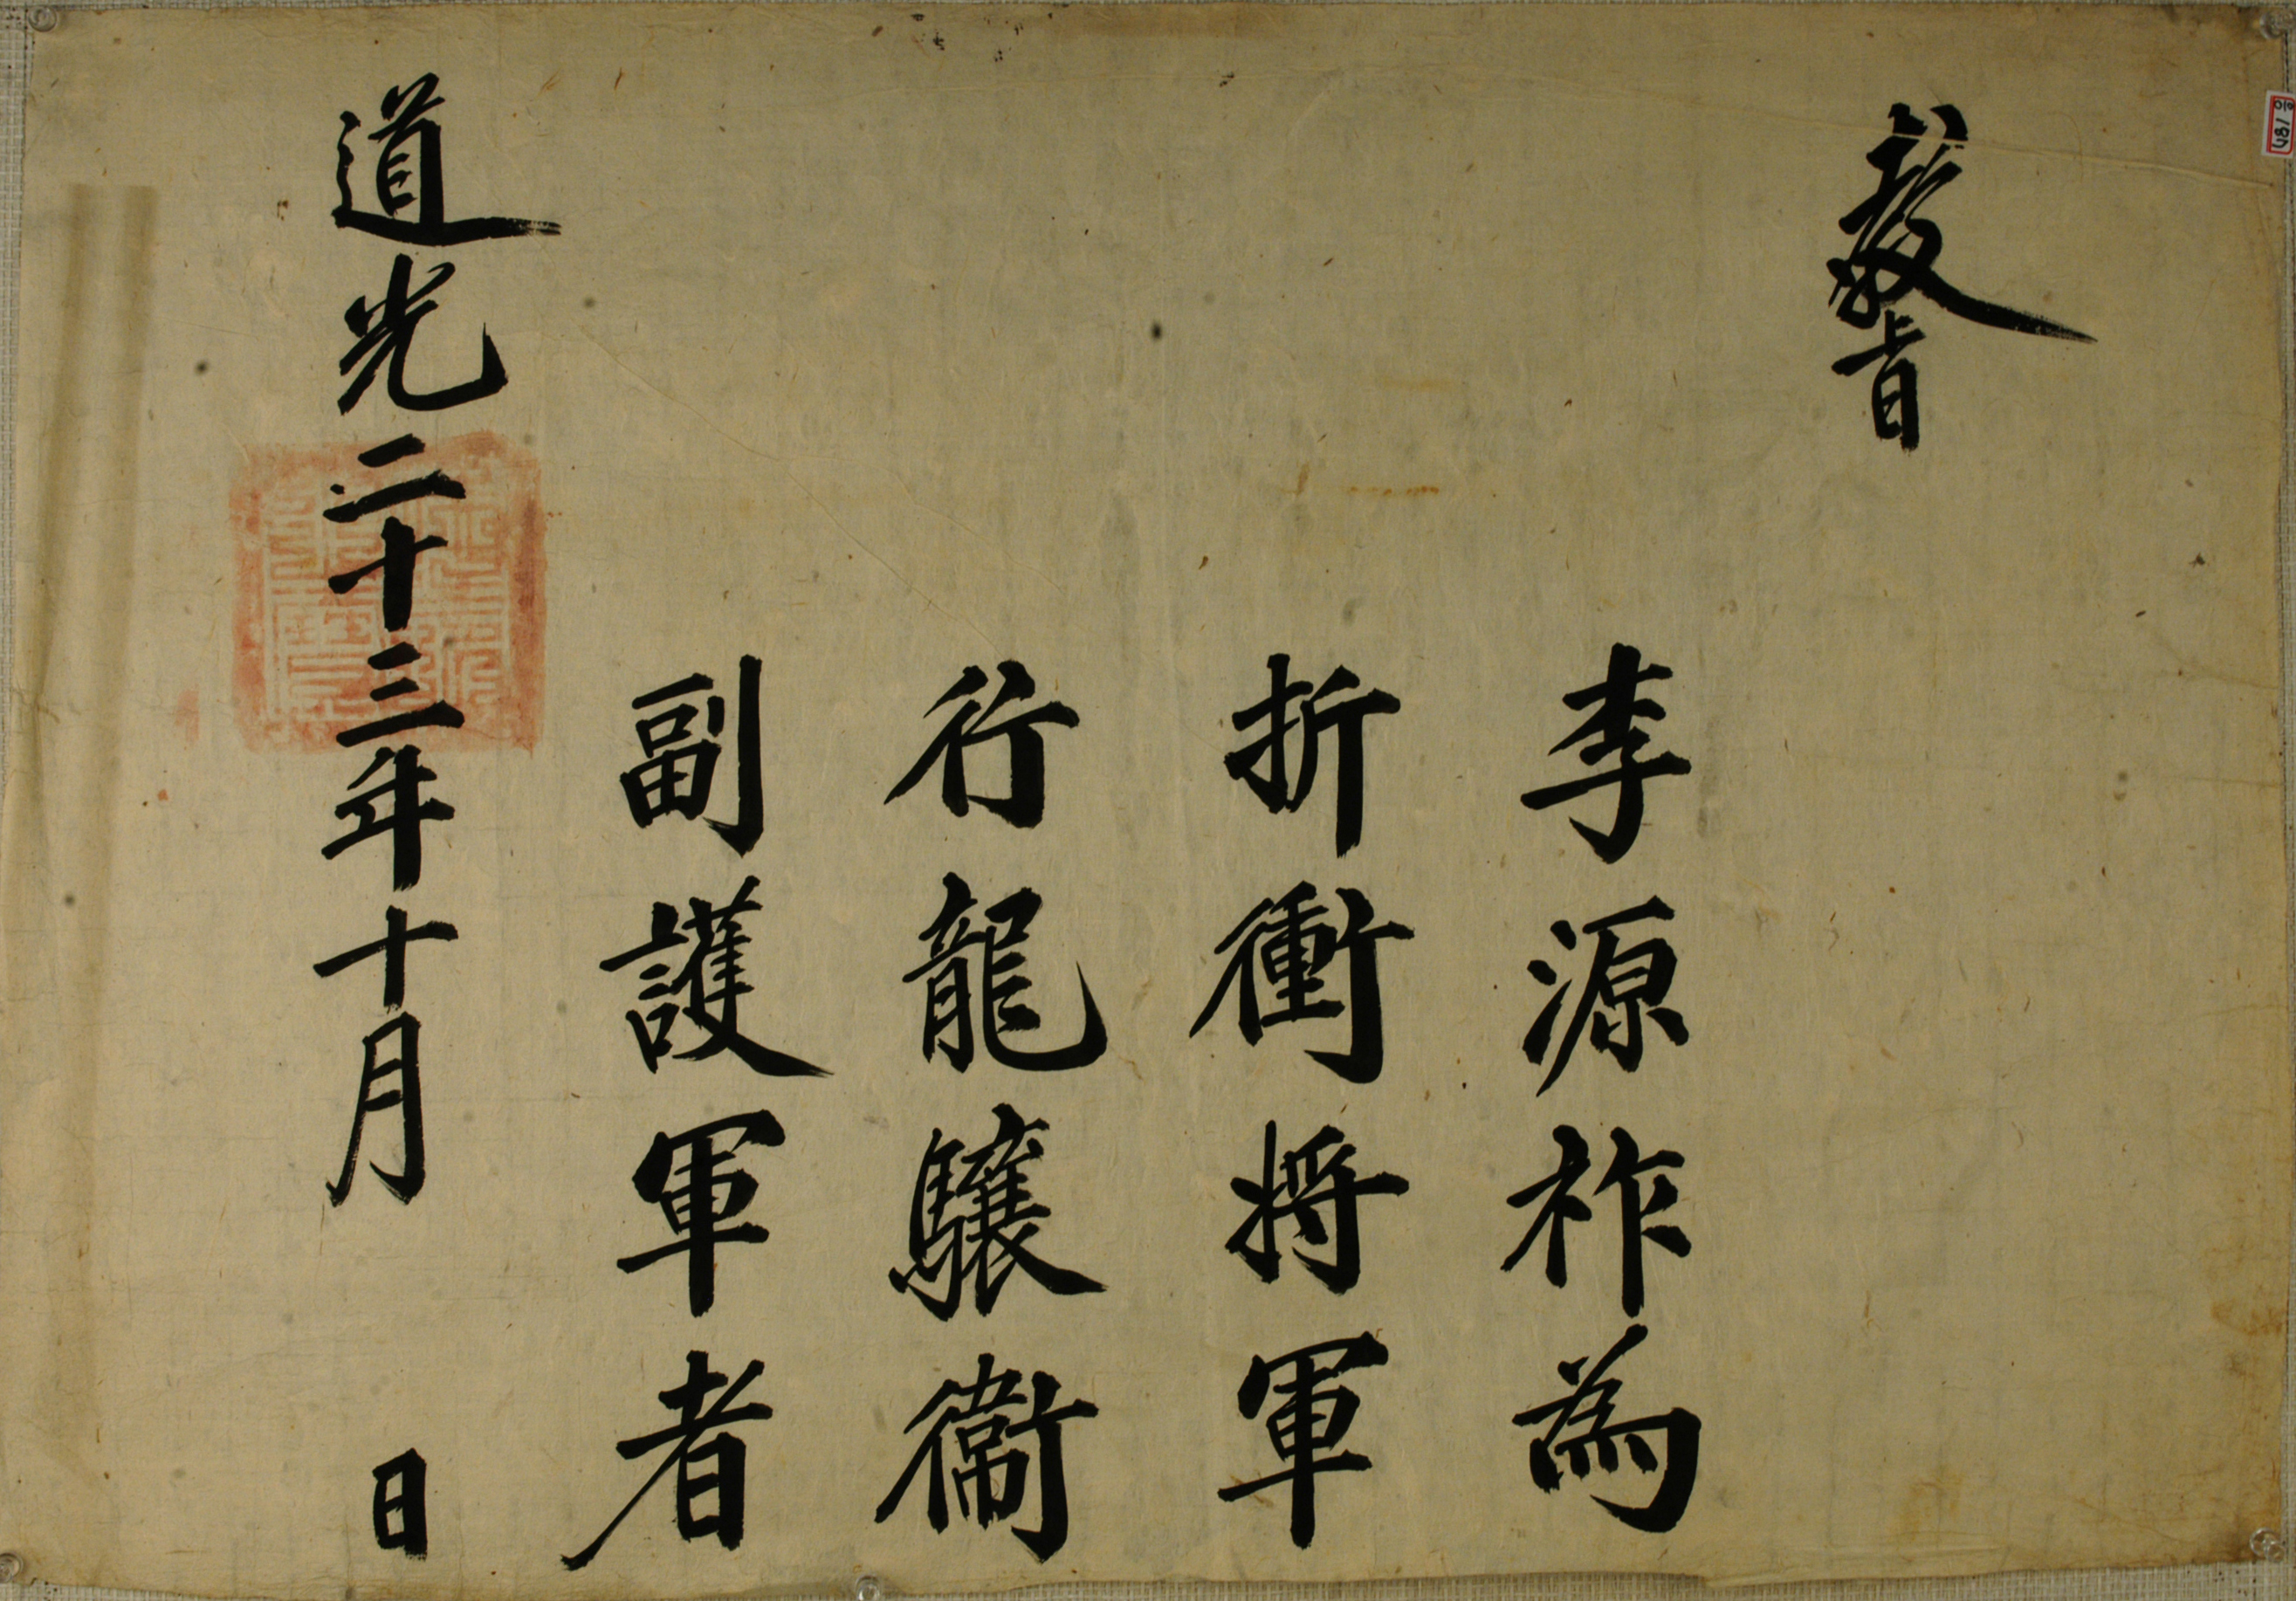 教旨
李源祚為
折衝将軍
行龍驤衛
副護軍者
道光二十三年十月 日